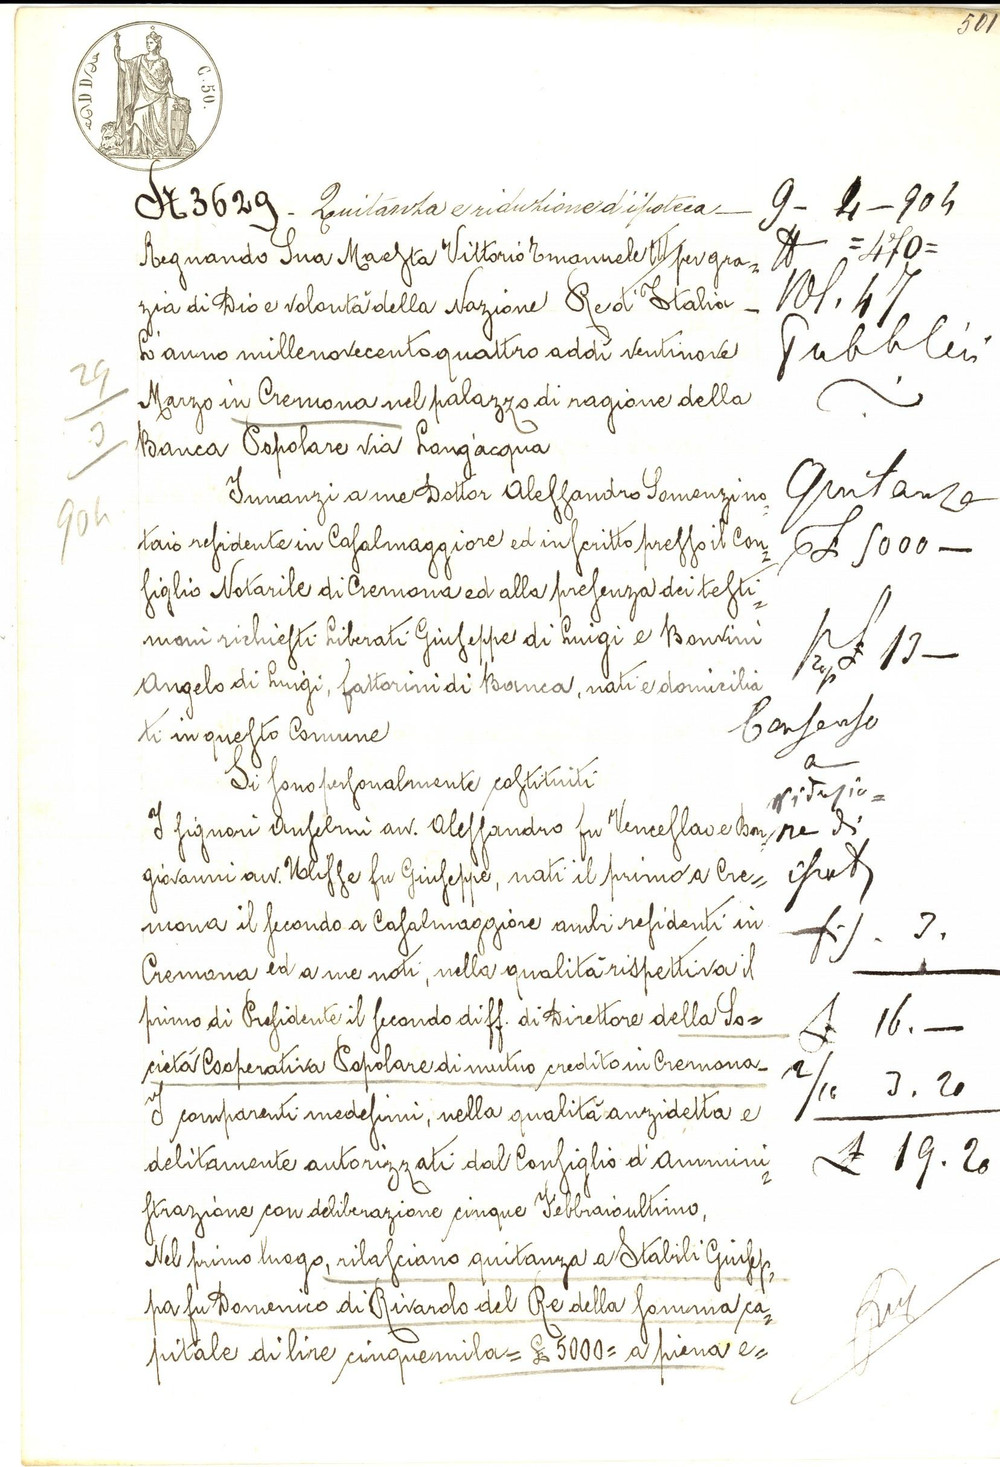 501
C. 50.
N 3629 - Quitanza e riduzione d'ipoteca —
Regnando Sua Maesta Vittorio Emanuele III per gra=
zia di Dio e volontà della Nazione Re d'Italia —
L'anno millenovecentoquattro addì ventinove
Marzo in Cremona nel palazzo di ragione della
Banca Popolare via Lungacqua
Innanzi a me Dottor Alessandro Somenzi no=
taio residente in Casalmaggiore ed inscritto presso il Con=
siglio Notarile di Cremona ed alla presenza dei testi=
moni richiesti Liberati Giuseppe di Luigi e Bonvini
Angelo di Luigi, fattorini di Banca, nati e domicilia
ti in questo Comune
Si sono personalmente costituiti
I signori Anselmi av. Alessandro fu Venceslao e Bon=
giovanni av. Ulisse fu Giuseppe, nati il primo a Cre=
mona il secondo a Casalmaggiore ambi residenti in
Cremona ed a me noti, nella qualità rispettiva il
primo di Presidente il secondo di ff. di Direttore della So=
cietà Cooperativa Popolare di mutuo credito in Cremona —
I comparenti medesimi, nella qualità anzidetta e
delitamente autorizzati dal Consiglio d'Ammini=
strazione con deliberazione cinque Febbraio ultimo,
Nel primo luogo, rilasciano quitanza a Stabili Giusep=
pa fu Domenico di Rivarolo del Re della somma ca=
pitale di lire cinquemila = £ 5000 = a piena e=
29
3
904
9 - 4 - 904
N = 470 =
Vol. 47
Pubblici
Quitanza
£ 5000 —
£ 13 —
Consenso
a
riduzio=
ne di
ipot
fis. 3.
£ 16. —
2/10 3. 20
£ 19. 20